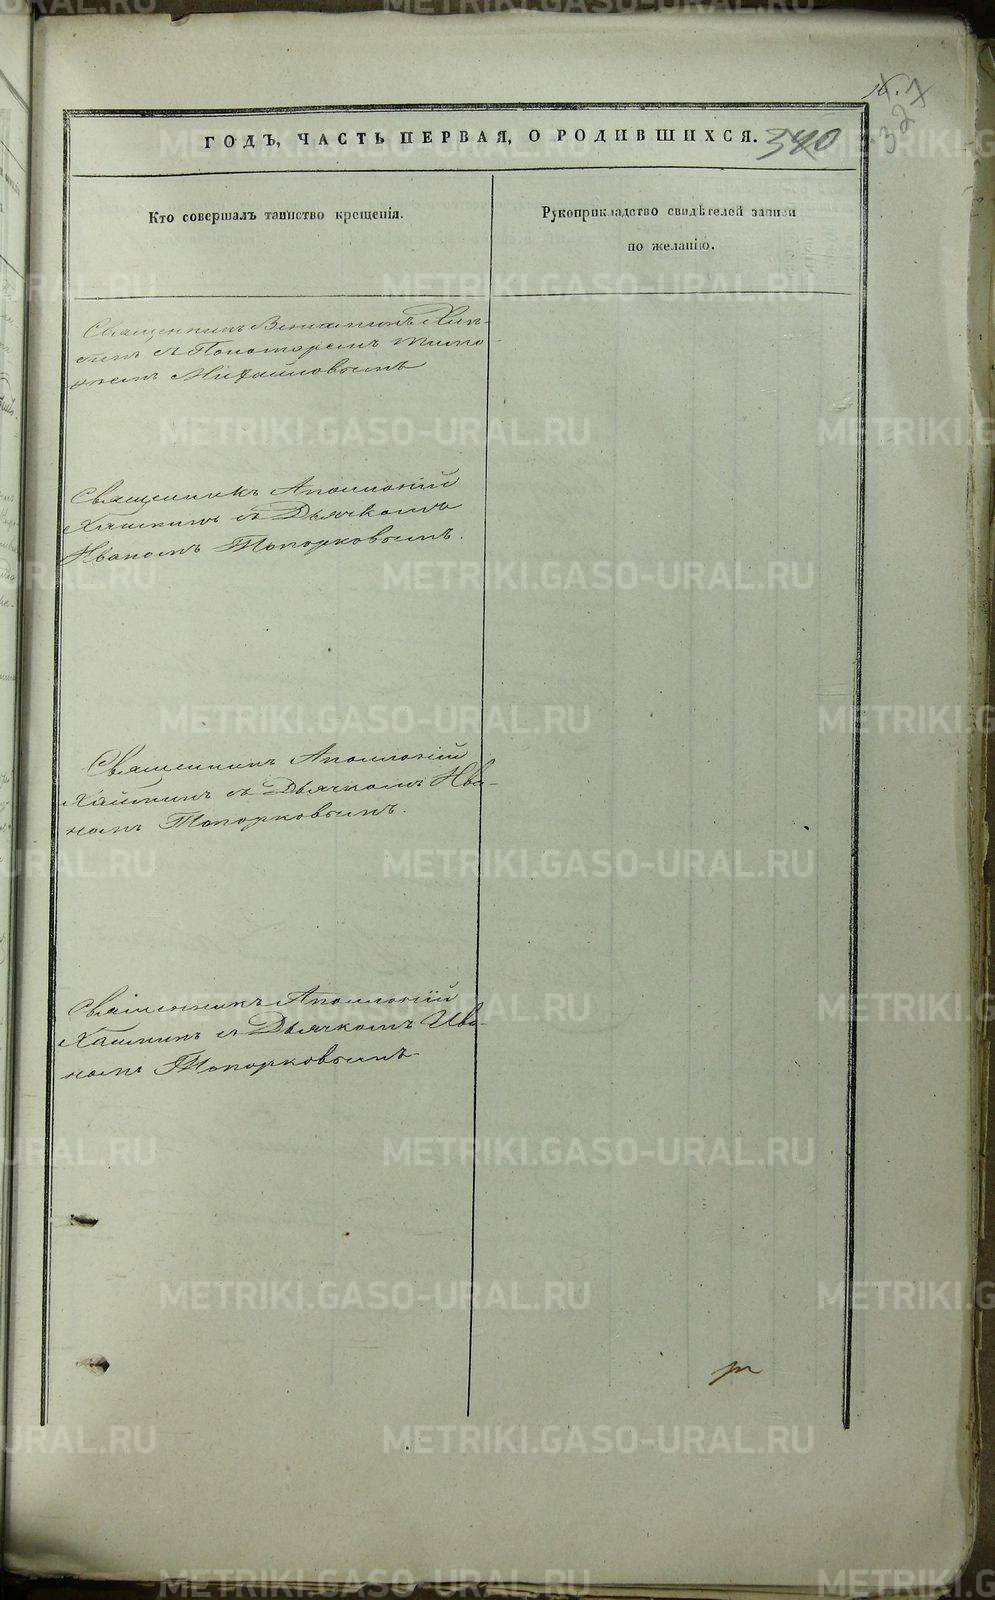 16.
327
ГОДЪ, ЧАСТЬ ПЕРВАЯ, О РОДИВШИХСЯ.
340
Кто совершалъ таинство крещенія.
Рукоприкладство свидѣтелей записи
по желанію.
Священникъ Веніаминъ
съ Пономаремъ
Михайловымъ
Священникъ Аполлоній
Хашкинъ съ Дьячкомъ
Иваномъ Топорковымъ.
Священникъ Аполлоній
Хашкинъ съ Дьячкомъ Ива-
номъ Топорковымъ.
Священникъ Аполлоній
Хашкинъ съ Дьячкомъ Ива-
номъ Топорковымъ
METRIKI.GASO-URAL.RU